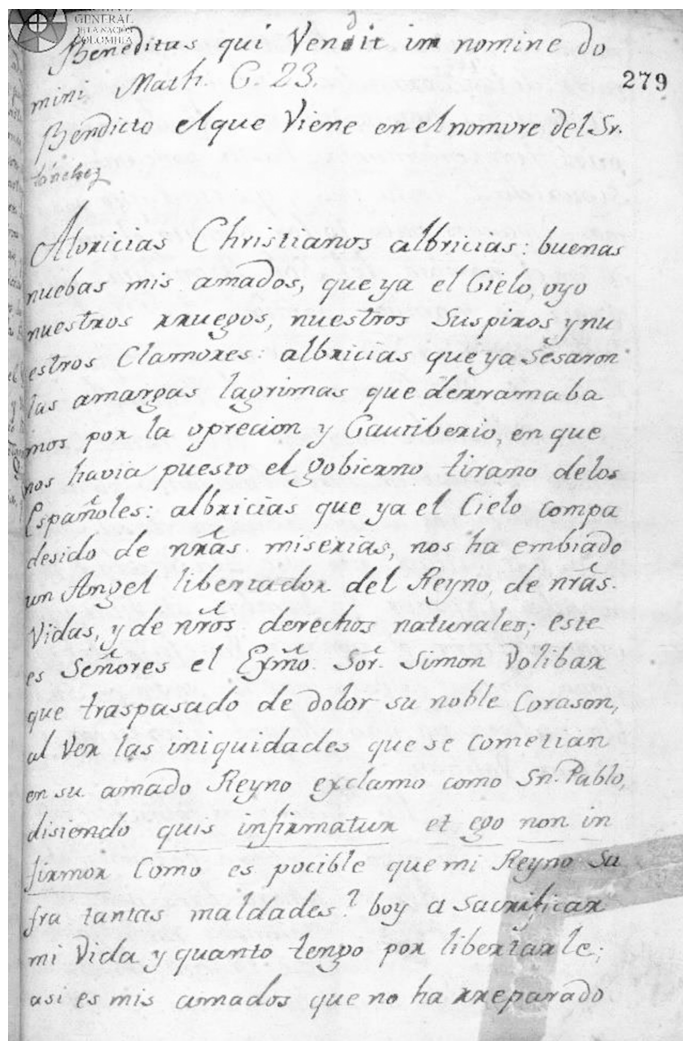 ARCHIVO
GENERAL
DE LA NACIÓN
COLOMBIA
Beneditus qui Vendit in nomine do
mini Math. C. 23.
279
Bendicto el que Viene en el nomvre del Sr.
Sánchez
Alvricias Christianos albricias: buenas
nuebas mis amados, que ya el Cielo, oyo
nuestros rruegos, nuestros Suspiros y nu
estros Clamores: albricias que ya Sesaron
las amargas lagrimas que derramaba
mos por la oprecion y Cautiberio, en que
nos havia puesto el gobierno tirano delos
Españoles: albricias que ya el Cielo compa
desido de nrãs. miserias, nos ha embiado
un Angel libertador del Reyno, de nrãs.
Vidas, y de nrõs. derechos naturales; este
es Señores el Exmõ. Sor. Simon Volibar
que traspasado de dolor su noble Corason,
al Ver las iniquidades que se cometian
en su amado Reyno exclamo como Sn. Pablo,
disiendo quis infirmatur et ego non in
firmor Como es pocible que mi Reyno Su
fra tantas maldades? boy a Sacrificar
mi Vida y quanto tengo por libertarle;
asi es mis amados que no ha rreparado